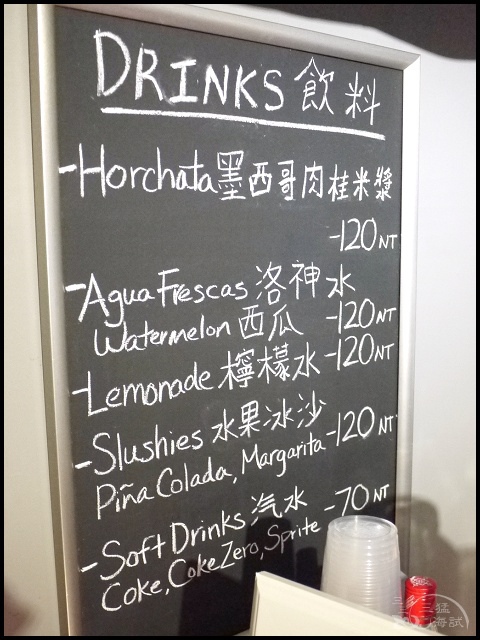 DRINKS 飲料
-Horchata墨西哥肉桂米漿
-120NT
-Agua Frescas 洛神水
Watermelon 西瓜 -120NT
-Lemonade 檸檬水 -120NT
-Slushies 水果冰沙
Piña Colada, Margarita -120NT
-Soft Drinks 汽水 -70NT
Coke, Coke Zero, Sprite